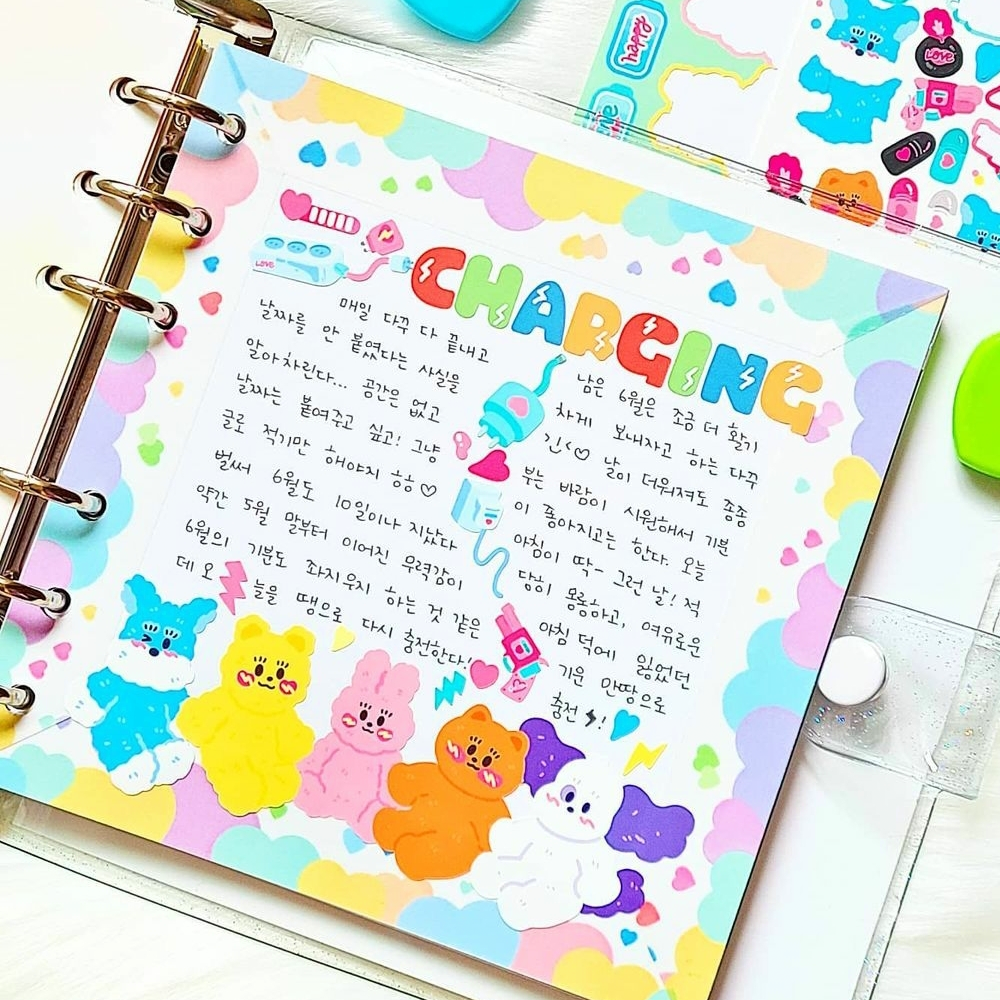 happy
LOVE
LOVE
CHARGING
매일 다꾸 다 끝내고
날짜를 안 붙였다는 사실을
알아차린다... 공간은 없고
날짜는 붙여주고 싶고! 그냥
글로 적기만 해야지 히히♡
벌써 6월도 10일이나 지났다
약간 5월 말부터 이어진 무력감이
6월의 기분도 좌지우지 하는 것 같은
데 오늘을 땡으로 다시 충전한다!
남은 6월은 조금 더 활기
차게 보내자고 하는 다꾸
긴<♡ 날이 더워져도 종종
부는 바람이 시원해서 기분
이 좋아지고는 한다. 오늘
아침이 딱- 그런 날! 적
당히 몽롱하고, 여유로운
아침 덕에 잃었던
기운 만땅으로
충전!